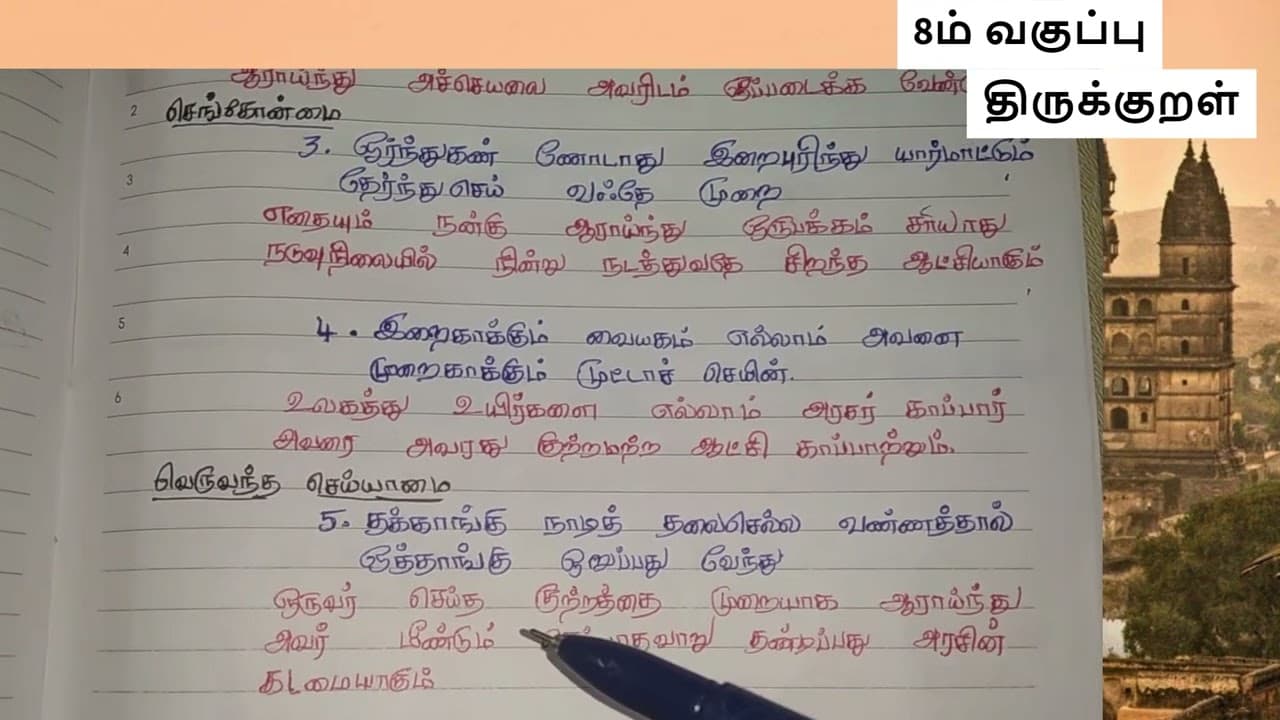 8ம் வகுப்பு
திருக்குறள்
ஆராய்ந்து அச்செயலை அவரிடம் ஒப்படைக்க
2 செங்கோன்மை
3. ஓர்ந்துகண் ணோடாது இறைபுரிந்து யார்மாட்டும்
3 தேர்ந்துசெய் வஃதே முறை
எதையும் நன்கு ஆராய்ந்து ஒருபக்கம் சரியாது
4 நடுவுநிலையில் நின்று நடத்துவதே சிறந்த ஆட்சியாகும்
5 4. இறைகாக்கும் வையகம் எல்லாம் அவனை
முறைகாக்கும் முட்டாச் செயின்.
6 உலகத்து உயிர்களை எல்லாம் அரசர் காப்பார்
அவரை அவரது குற்றமற்ற ஆட்சி காப்பாற்றும்.
வெருவந்த செய்யாமை
5. தக்காங்கு நாடித் தலைசெல்லா வண்ணத்தால்
ஒத்தாங்கு ஒறுப்பது வேந்து
ஒருவர் செய்த குற்றத்தை முறையாக ஆராய்ந்து
அவர் மீண்டும் தண்டிப்பது அரசின்
கடமையாகும்